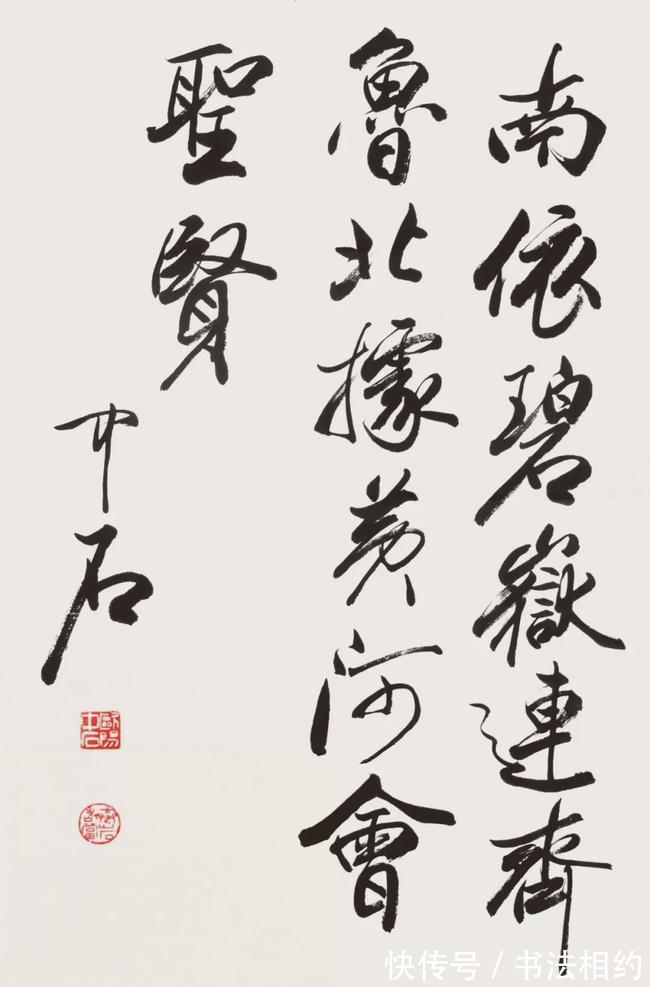 南依碧嶽連齊
魯北據黄河會
聖賢
中石
歐陽中石
快传号/书法相约